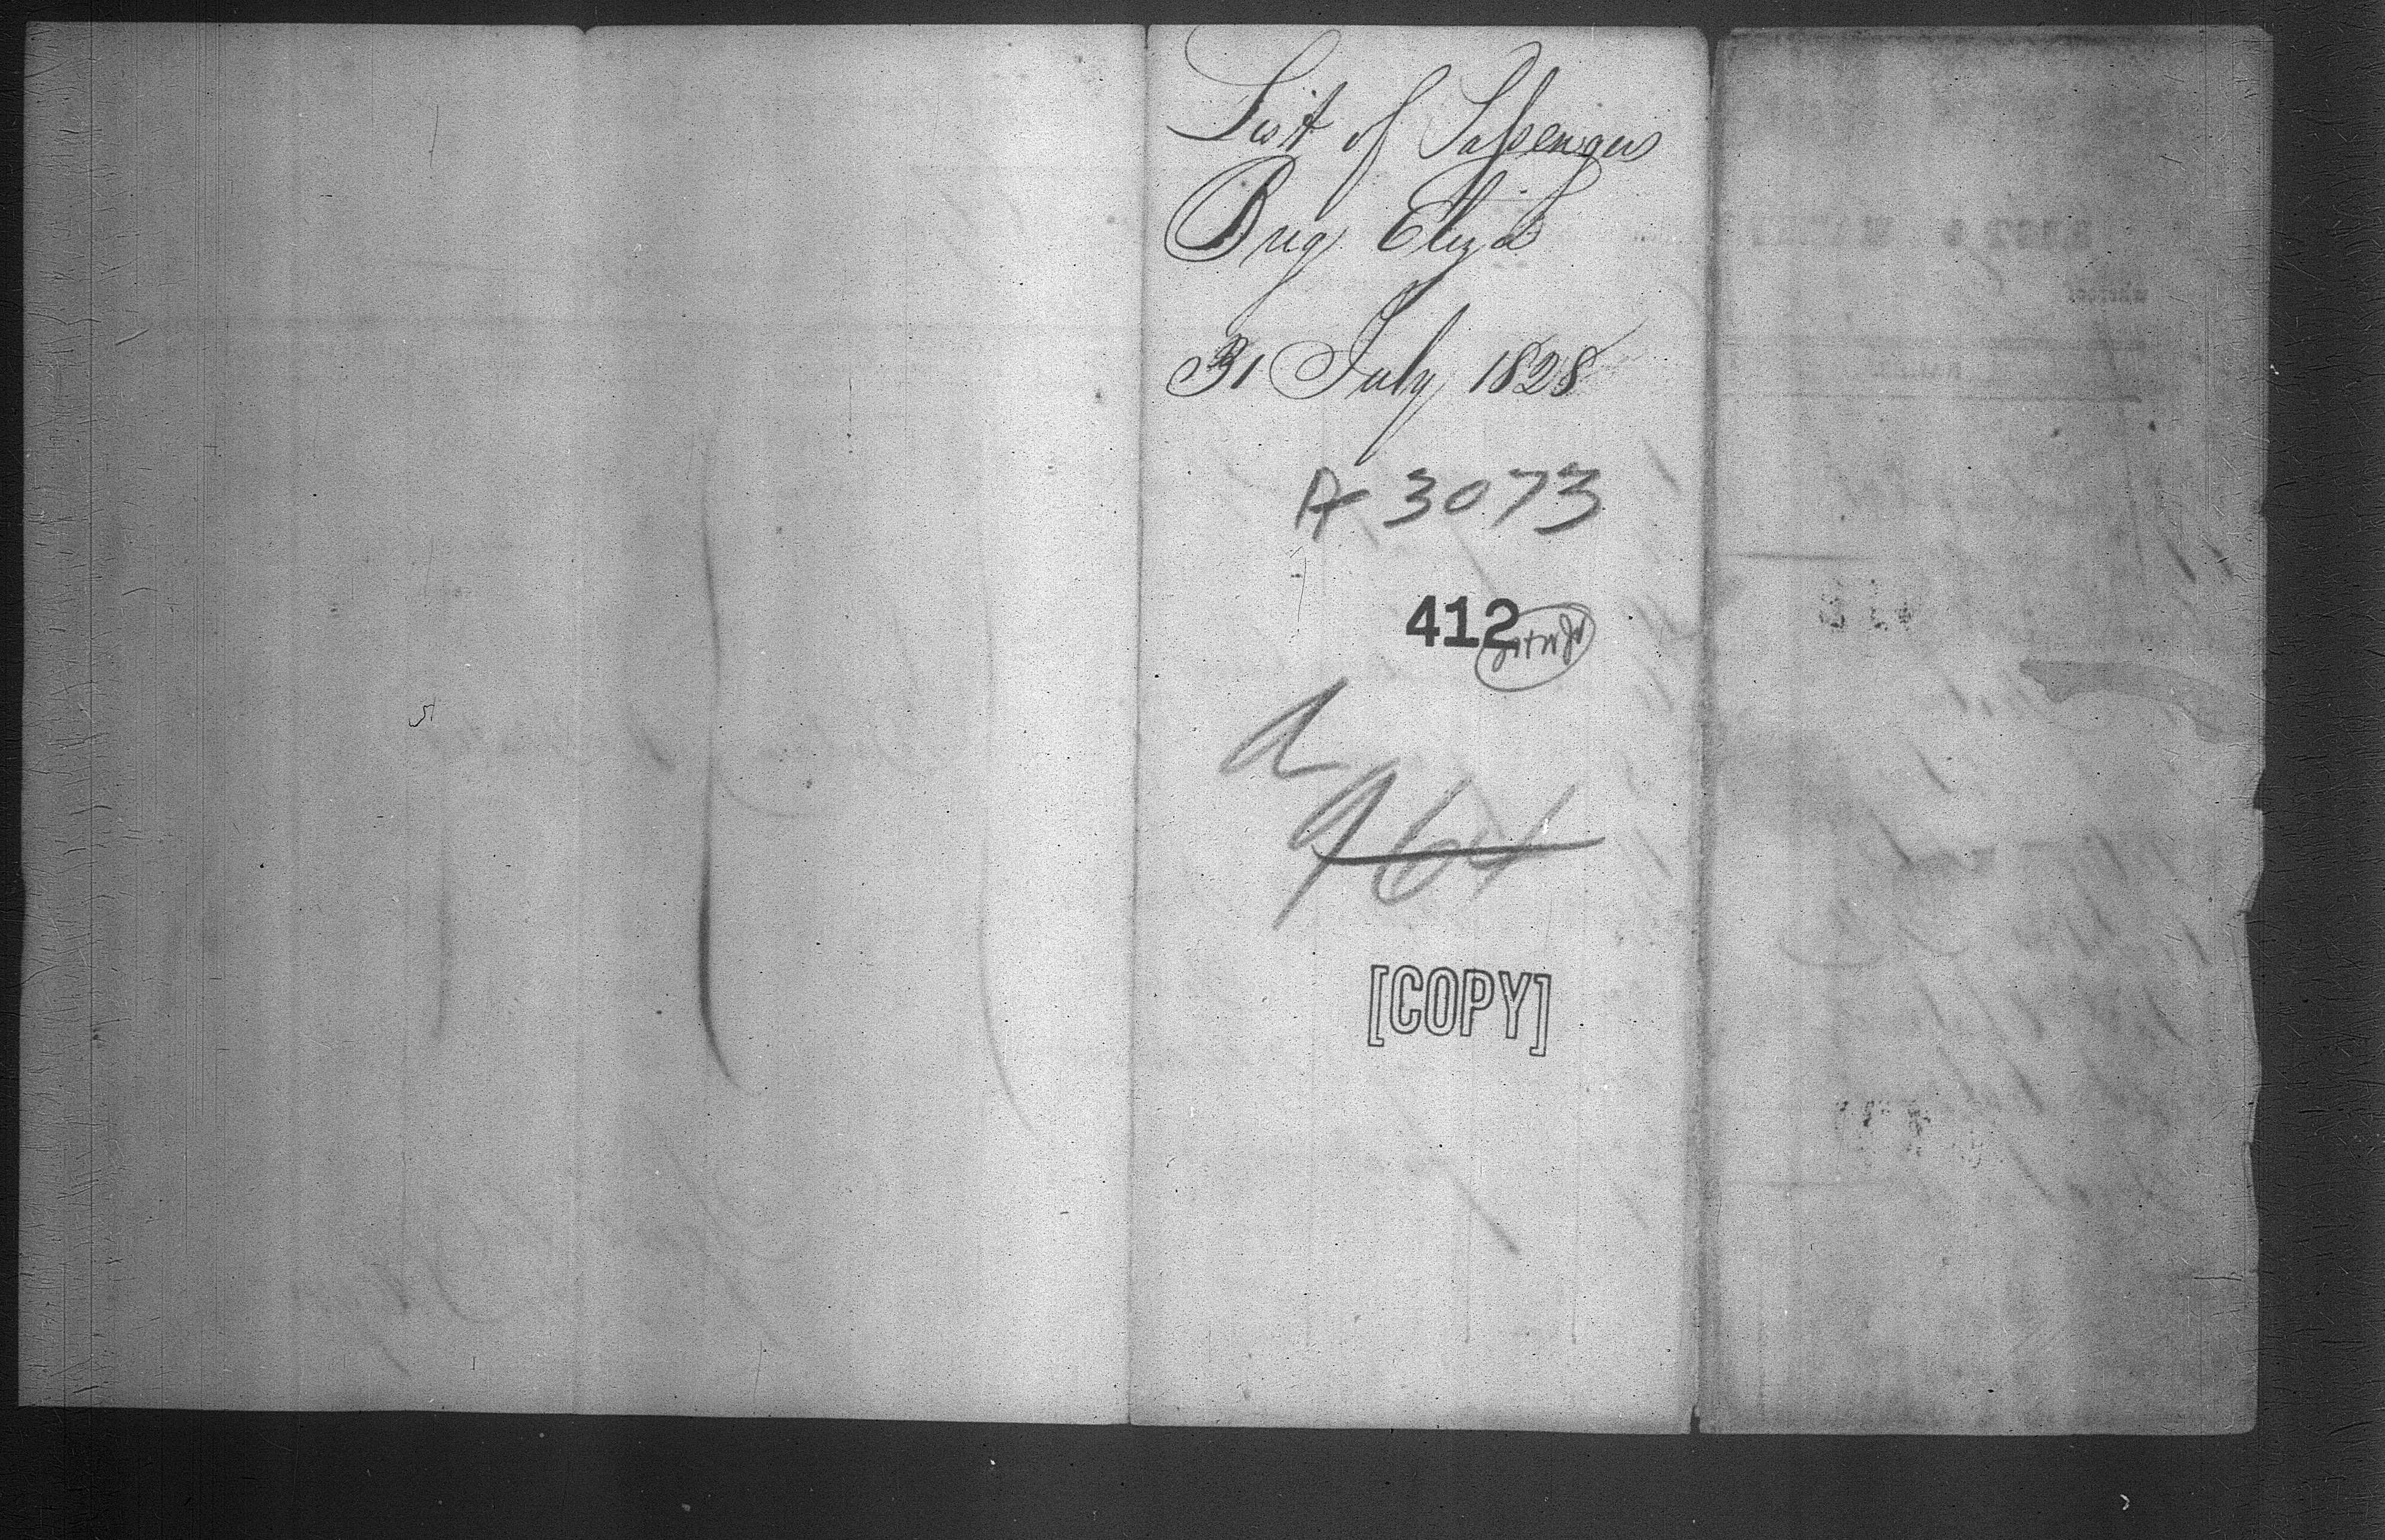 List of Passengers
Brig Eliza
31 July 1828
A 3073
412
A
964
[COPY]